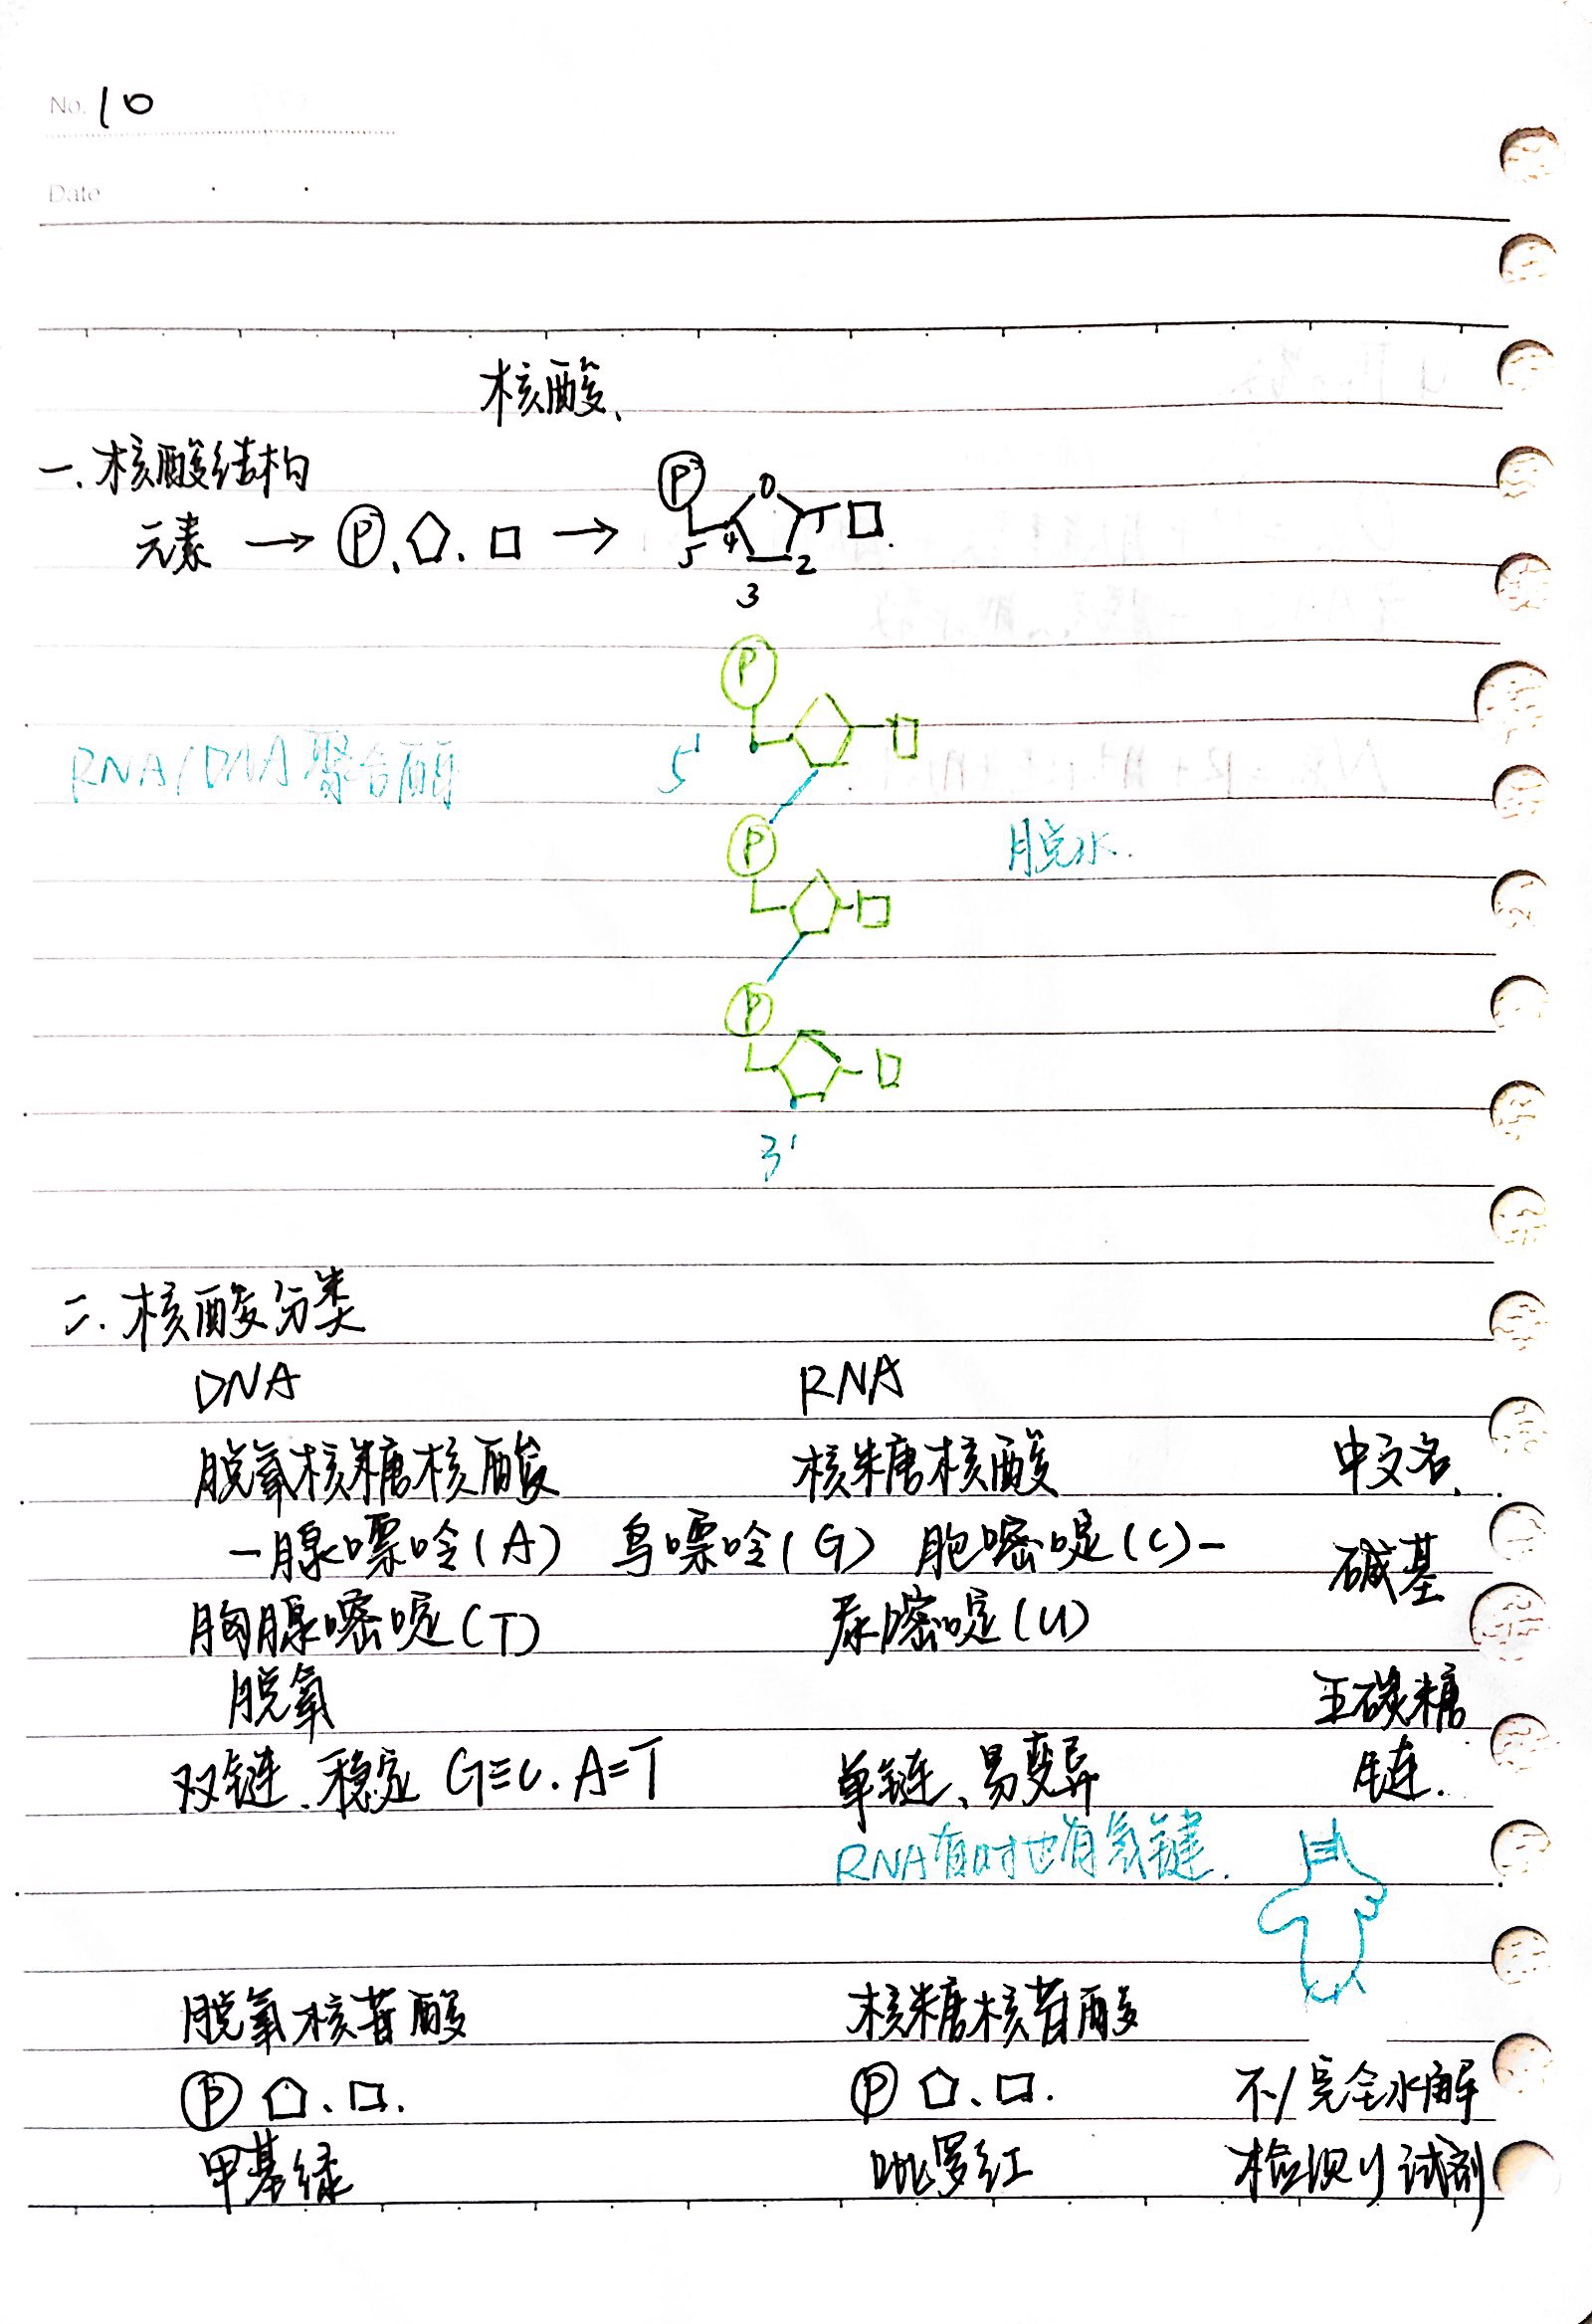 No. 10
Date
核酸、
一.核酸结构
元素 → Ⓟ、⬠.□ → Ⓟ O 1 □
5 4 2
3
P
RNA/DNA聚合酶 5'
P 脱水.
P
3'
二.核酸分类
DNA RNA
脱氧核糖核酸 核糖核酸 中文名、
—腺嘌呤(A) 鸟嘌呤(G) 胞嘧啶(C)— 碱基
胸腺嘧啶(T) 尿嘧啶(U)
脱氧 五碳糖
双链、稳定 G≡C.A=T 单链、易变异 链.
RNA有时也有氢键.
脱氧核苷酸 核糖核苷酸
Ⓟ ⬠、□. Ⓟ ⬠、□. 不/完全水解
甲基绿 吡罗红 检测试剂